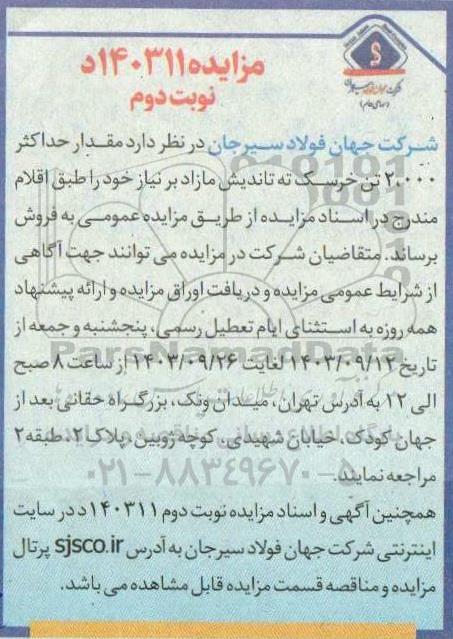 شرکت جهان فولاد سیرجان
(سهامی عام)
مزایده ۱۴۰۳۱۱د
نوبت دوم
شرکت جهان فولاد سیرجان در نظر دارد مقدار حداکثر
۲،۰۰۰ تن خرسک ته تاندیش مازاد بر نیاز خود را طبق اقلام
مندرج در اسناد مزایده از طریق مزایده عمومی به فروش
برساند. متقاضیان شرکت در مزایده می توانند جهت آگاهی
از شرایط عمومی مزایده و دریافت اوراق مزایده و ارائه پیشنهاد
همه روزه به استثنای ایام تعطیل رسمی، پنجشنبه و جمعه از
تاریخ ۱۴۰۳/۰۹/۱۲ لغایت ۱۴۰۳/۰۹/۲۶ از ساعت ۸ صبح
الی ۱۲ به آدرس تهران، میدان ونک، بزرگراه حقانی بعد از
جهان کودک، خیابان شهیدی، کوچه ژوبین، پلاک ۲، طبقه ۲
مراجعه نمایند.
۰۲۱-۸۸۳۴۹۶۷۰-۵
همچنین آگهی و اسناد مزایده نوبت دوم ۱۴۰۳۱۱د در سایت
اینترنتی شرکت جهان فولاد سیرجان به آدرس sjsco.ir پرتال
مزایده و مناقصه قسمت مزایده قابل مشاهده می باشد.
ParsNamadData